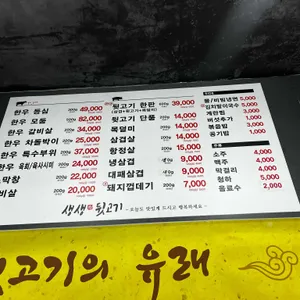 한우 등심 200g 49,000
한우 모둠 200g 82,000
한우 갈비살 200g 34,000
한우 차돌박이 200g 25,000
한우 특수부위 200g 37,000
한우 육회/육사시미 200g 24,000
막창 200g 22,000
비살 200g 20,000
뒷고기 한판 600g 39,000
뒷고기 단품 14,000
목덜미 14,000
삼겹살 14,000
항정살 15,000
냉삼겹 9,000
대패삼겹 9,000
돼지껍데기 200g 7,000
물/비빔냉면 5,000
김치말이국수 5,000
계란찜 3,000
버섯추가 1,000
볶음밥 3,000
공기밥 1,000
소주 4,000
맥주 4,000
막걸리 4,000
청하 5,000
음료수 2,000
생생 뒷고기
-오늘도 맛있게 드시고 행복하세요-
뒷고기의 유래